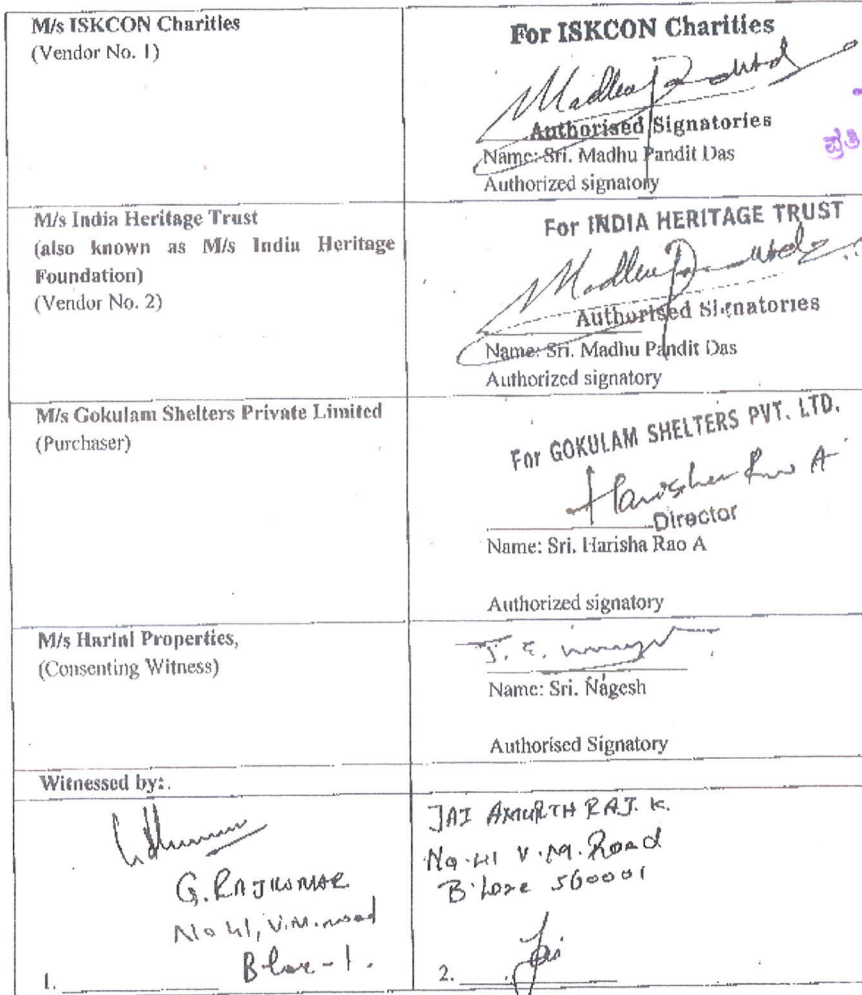 M/s ISKCON Charities
(Vendor No. 1)
For ISKCON Charities
Authorised Signatories
Name: Sri. Madhu Pandit Das
Authorized signatory
ಪ್ರತಿ
M/s India Heritage Trust
(also known as M/s India Heritage
Foundation)
(Vendor No. 2)
For INDIA HERITAGE TRUST
Authorised Signatories
Name: Sri. Madhu Pandit Das
Authorized signatory
M/s Gokulam Shelters Private Limited
(Purchaser)
For GOKULAM SHELTERS PVT. LTD.
Harisha Rao A
Director
Name: Sri. Harisha Rao A
Authorized signatory
M/s Harini Properties,
(Consenting Witness)
Name: Sri. Nagesh
Authorised Signatory
Witnessed by:
G. RAJKUMAR
No 41, V.M. road
B'lore - 1.
1.
JAI AMURTH RAJ. K.
No. 41 V.M. Road
B'lore 560001
2.